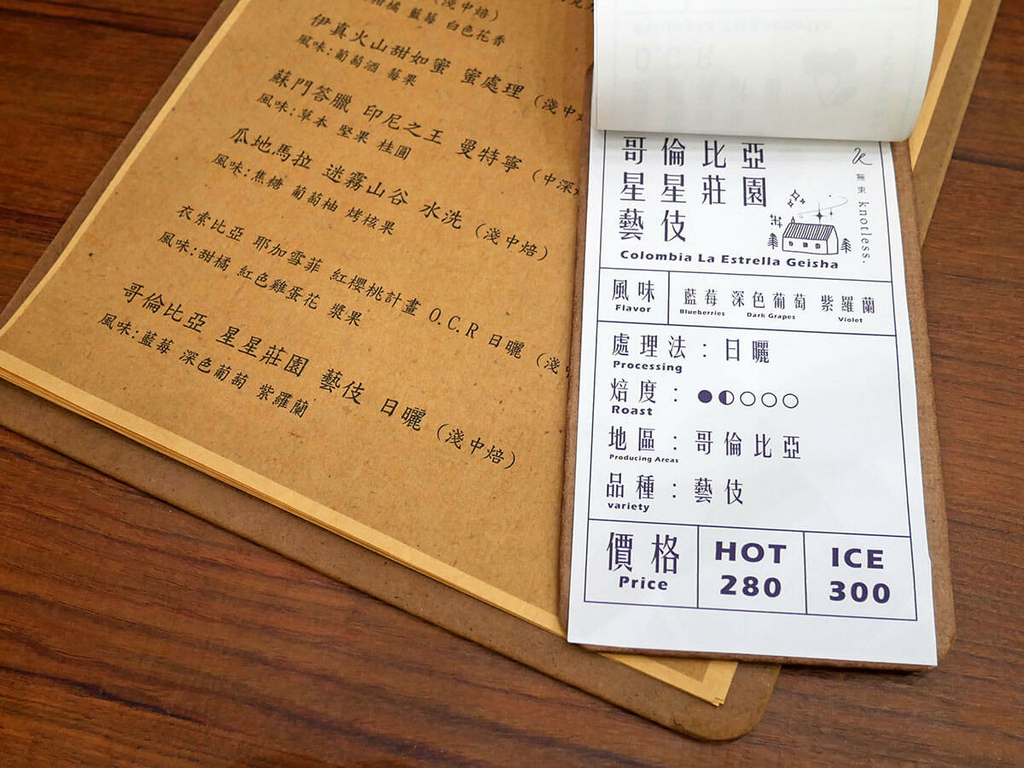 柑橘 藍莓 白色花香
(淺中焙)
伊真火山甜如蜜 蜜處理 (淺中
風味:葡萄酒 莓果
蘇門答臘 印尼之王 曼特寧 (中深
風味:草本 堅果 桂圓
瓜地馬拉 迷霧山谷 水洗 (淺中焙)
風味:焦糖 葡萄柚 烤核果
衣索比亞 耶加雪菲 紅櫻桃計畫 O.C.R 日曬 (淺
風味:甜橘 紅色雞蛋花 漿果
哥倫比亞 星星莊園 藝伎 日曬 (淺中焙)
風味:藍莓 深色葡萄 紫羅蘭
哥倫比亞
星星莊園
藝伎
Colombia La Estrella Geisha
無束 knotless.
風味
Flavor
藍莓 深色葡萄 紫羅蘭
Blueberries Dark Grapes Violet
處理法：日曬
Processing
焙度：
Roast
地區：哥倫比亞
Producing Areas
品種：藝伎
variety
價格
Price
HOT
280
ICE
300